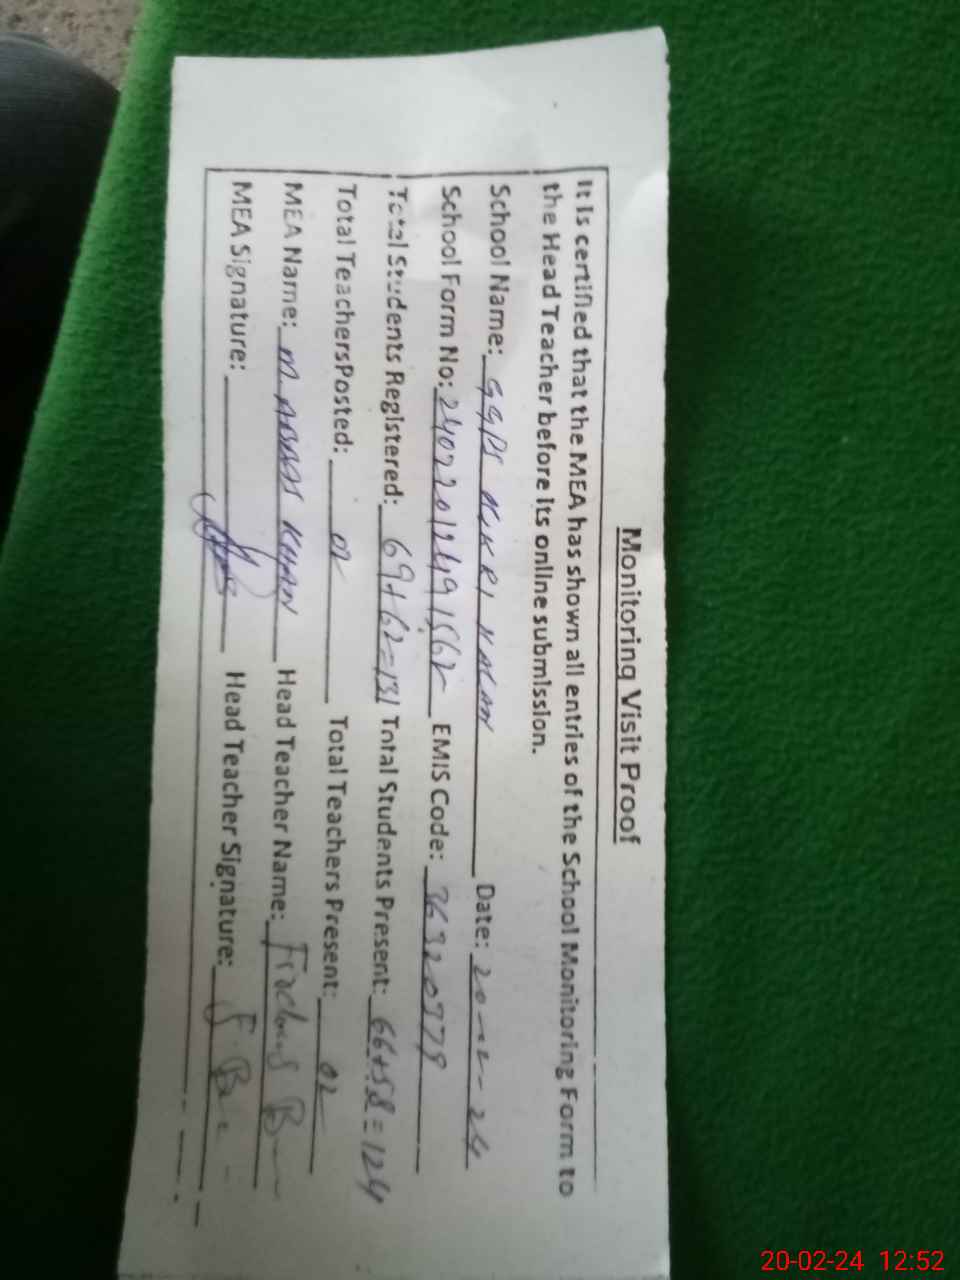 Monitoring Visit Proof
It is certified that the MEA has shown all entries of the School Monitoring Form to
the Head Teacher before its online submission.
School Name: GGPS Date: 20-02-24
School Form No: EMIS Code: 36320779
Total Students Registered: 69+62=131 Total Students Present: 66+58=124
Total TeachersPosted: 02 Total Teachers Present: 02
MEA Name: M. ABBAS KHAN Head Teacher Name:
MEA Signature: Head Teacher Signature:
20-02-24 12:52